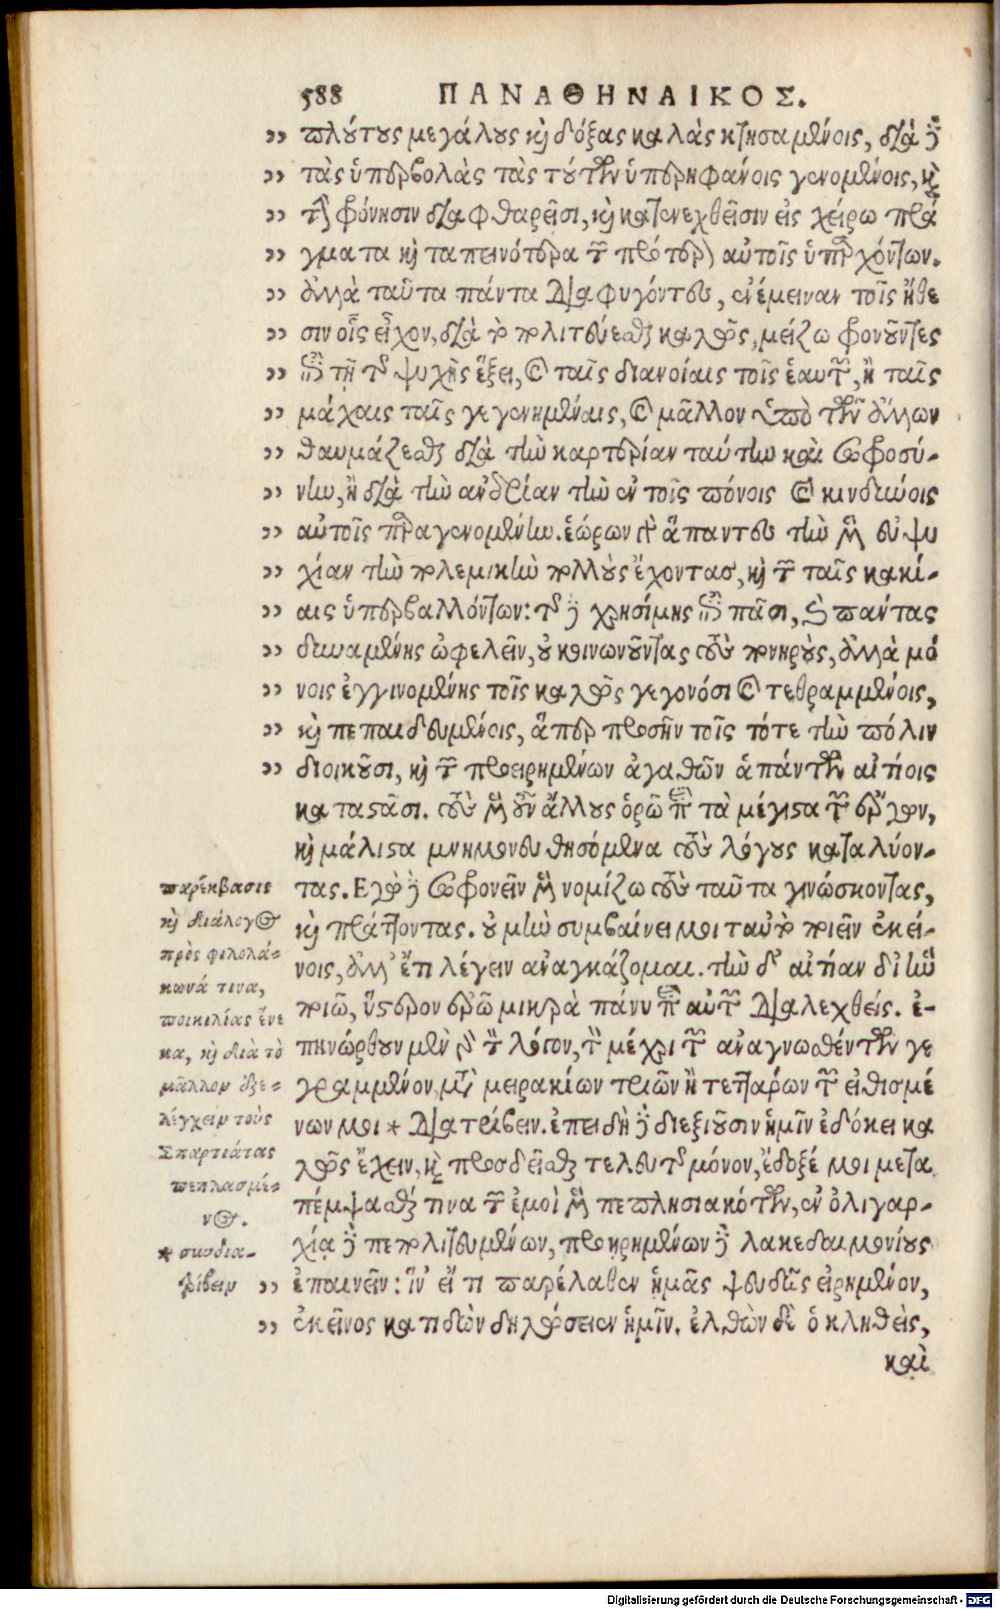 588 ΠΑΝΑΘΗΝΑΙΚΟΣ.
„ πλούτους μεγάλους καὶ δόξας καλὰς κτησαμένοις, διὰ δὲ
„ τὰς ὑπερβολὰς τὰς τούτων ὑπερηφάνοις γενομένοις, καὶ
„ τὴν φρόνησιν διαφθαρεῖσι, καὶ κατενεχθεῖσιν εἰς χείρω πρά
„ γματα καὶ ταπεινότερα τῶν πρότερον αὐτοῖς ὑπαρχόντων.
„ ἀλλὰ ταῦτα πάντα διαφυγόντες, ἐνέμειναν τοῖς ἤθε
„ σιν οἷς εἶχον, διὰ τὸ πολιτεύεσθαι καλῶς, μείζω φρονοῦντες
„ ἐπὶ τῇ τῆς ψυχῆς ἕξει, καὶ ταῖς διανοίαις τοῖς ἑαυτῶν, ἢ ταῖς
„ μάχαις ταῖς γεγενημέναις, καὶ μᾶλλον ὑπὸ τῶν ἄλλων
„ θαυμάζεσθαι διὰ τὴν καρτερίαν ταύτην καὶ σωφροσύ-
„ νην, ἢ διὰ τὴν ἀνδρίαν τὴν ἐν τοῖς πόνοις καὶ κινδύνοις
„ αὐτοῖς παραγενομένην. ἑώρων γὰρ ἅπαντες τὴν μὲν εὐψυ
„ χίαν τὴν πολεμικὴν πολλοὺς ἔχοντας, καὶ τῶν ταῖς κακί-
„ αις ὑπερβαλλόντων: τῆς δὲ χρησίμης ἐπὶ πᾶσι, καὶ πάντας
„ δυναμένης ὠφελεῖν, οὐ κοινωνοῦντας τοὺς πονηροὺς, ἀλλὰ μό
„ νοις ἐγγινομένης τοῖς καλῶς γεγονόσι καὶ τεθραμμένοις,
„ καὶ πεπαιδευμένοις, ἅπερ προσῆν τοῖς τότε τὴν πόλιν
„ διοικοῦσι, καὶ τῶν προειρημένων ἀγαθῶν ἁπάντων αἰτίοις
καταστᾶσι. τοὺς μὲν οὖν ἄλλους ὁρῶ περὶ τὰ μέγιστα τῶν ἔργων,
καὶ μάλιστα μνημονευθησόμενα τοὺς λόγους καταλύον-
τας. Ἐγὼ δὲ σωφρονεῖν μὲν νομίζω τοὺς ταῦτα γινώσκοντας,
καὶ πράττοντας. οὐ μὴν συμβαίνει μοι ταὐτὸ ποιεῖν ἐκεί-
νοις, ἀλλ’ ἔτι λέγειν ἀναγκάζομαι. τὴν δ’ αἰτίαν δι’ ἣν
ποιῶ, ὕστερον ἐρῶ μικρὰ πάνυ περὶ αὐτῶν διαλεχθείς. ἐ-
πηνώρθουν μὲν γὰρ τὸν λόγον, τὸν μέχρι τῶν ἀναγνωσθέντων γε
γραμμένον, μετὰ μειρακίων τριῶν ἢ τεττάρων τῶν εἰθισμέ
νων μοι * διατρίβειν. ἐπειδὴ δὲ διεξιοῦσιν ἡμῖν ἐδόκει κα
λῶς ἔχειν, καὶ προσδεῖσθαι τελευτῆς μόνον, ἔδοξέ μοι μετα
πέμψασθαί τινα τῶν ἐμοὶ μὲν πεπλησιακότων, ἐν ὀλιγαρ-
χίᾳ δὲ πεπολιτευμένων, προῃρημένων δὲ λακεδαιμονίους
„ ἐπαινεῖν: ἵν’ εἴ τι παρέλαθεν ἡμᾶς ψευδῶς εἰρημένον,
„ ἐκεῖνος κατιδὼν δηλώσειεν ἡμῖν. ἐλθὼν δὲ ὁ κληθεὶς,
καὶ
παρέκβασις
καὶ διάλογος
πρὸς φιλολά-
κωνά τινα,
ποικιλίας ἕνε
κα, καὶ διὰ τὸ
μᾶλλον ἐξε-
λέγχειν τοὺς
Σπαρτιάτας
πεπλασμέ-
νος.
* συνδια-
τρίβειν
Digitalisierung gefördert durch die Deutsche Forschungsgemeinschaft - DFG